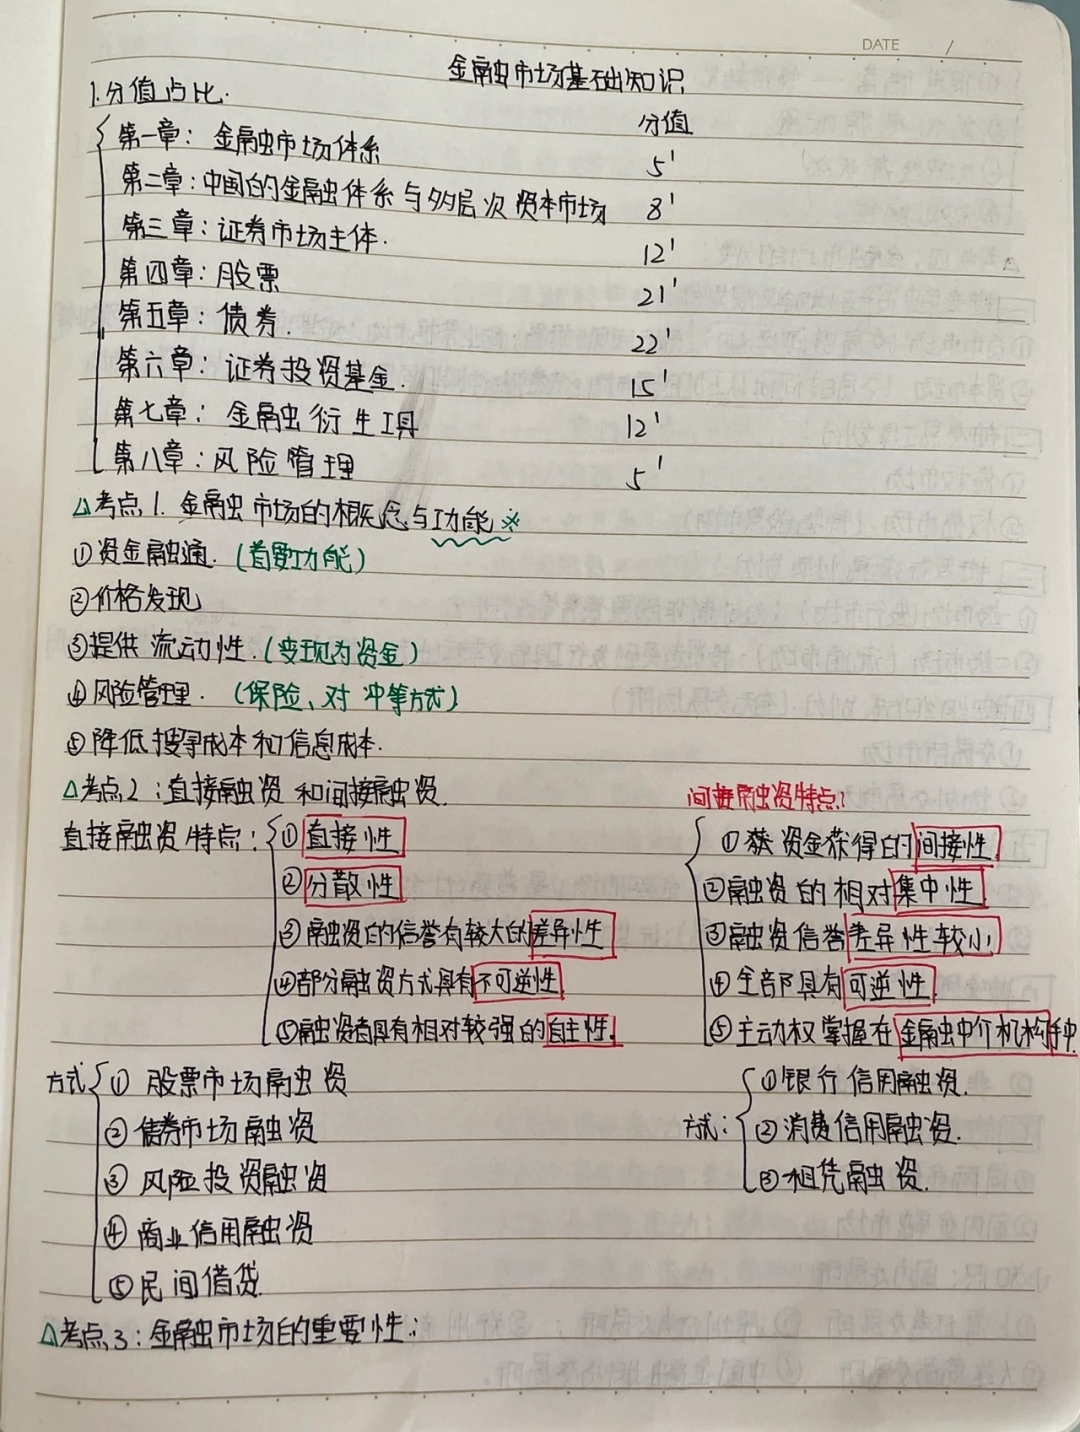 DATE /
金融市场基础知识
1.分值占比.
分值
第一章：金融市场体系 5'
第二章：中国的金融体系与多层次资本市场 8'
第三章：证券市场主体. 12'
第四章：股票 21'
第五章：债券. 22'
第六章：证券投资基金. 15'
第七章：金融衍生工具 12'
第八章：风险管理 5'
△考点1.金融市场的概念与功能※
①资金融通.(首要功能)
②价格发现
③提供流动性.(变现为资金)
④风险管理.(保险、对冲等方式)
⑤降低搜寻成本和信息成本.
△考点2：直接融资和间接融资.
直接融资特点：①直接性
②分散性
③融资的信誉有较大的差异性
④部分融资方式具有不可逆性
⑤融资者具有相对较强的自主性.
间接融资特点：
①资金获得的间接性.
②融资的相对集中性
③融资信誉差异性较小
④全部具有可逆性
⑤主动权掌握在金融中介机构手中
方式①股票市场融资
②债券市场融资
③风险投资融资
④商业信用融资
⑤民间借贷
方式：①银行信用融资.
②消费信用融资.
③租凭融资.
△考点3：金融市场的重要性：